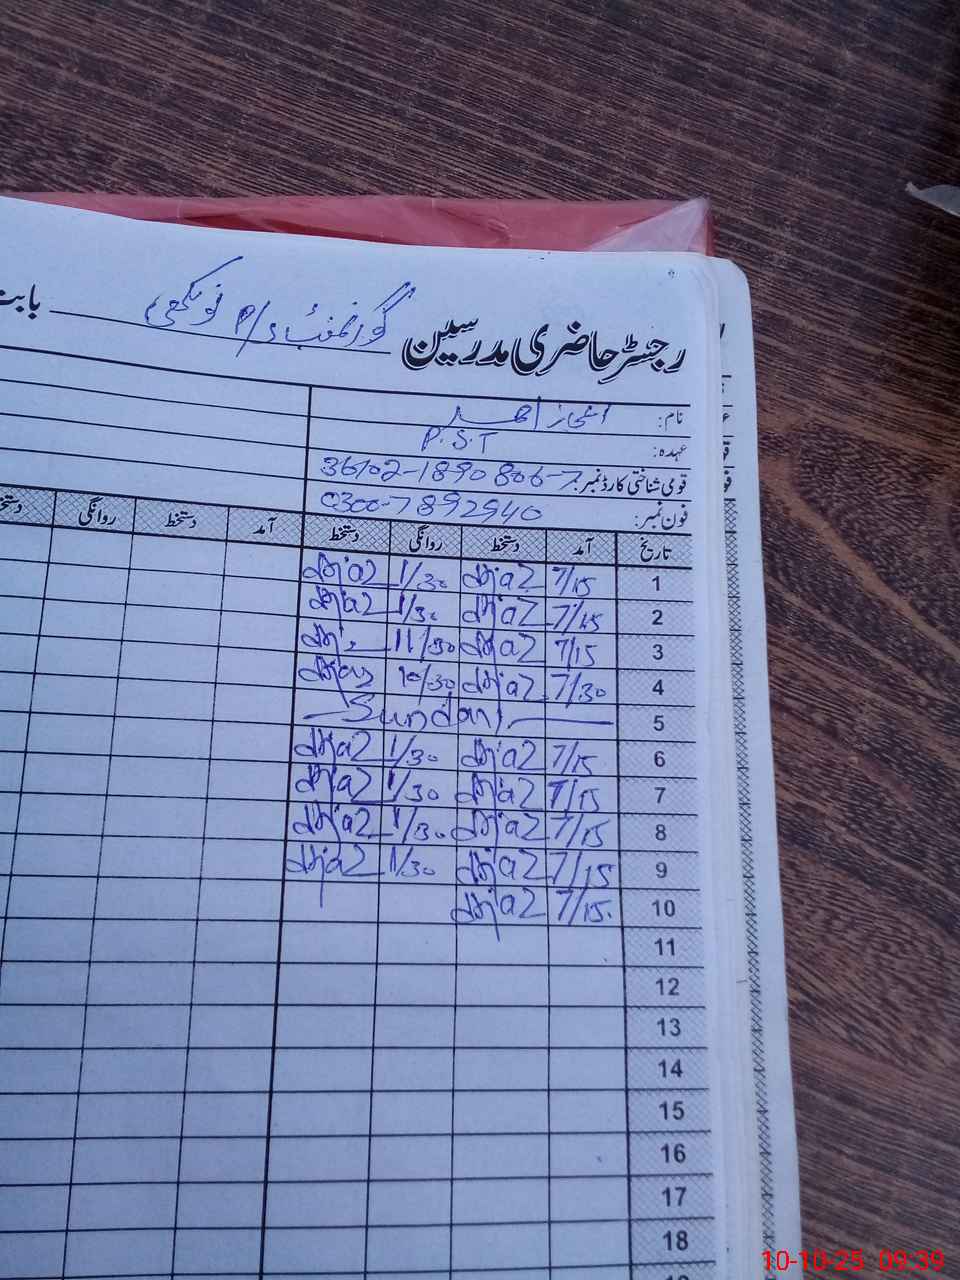 رجسٹر حاضری مدرسین گورنمنٹ P/S بابت
نام: اعجاز احمد
عہدہ: P.S.T
قومی شناختی کارڈ نمبر: 36102-1890806-7
فون نمبر: 0300-7892940
تاریخ آمد دستخط روانگی دستخط آمد دستخط روانگی
1 7/15 1/30
2 7/15 1/30
3 7/15 11/30
4 7/30 10/30
5 Sunday
6 7/15 1/30
7 7/15 1/30
8 7/15 1/30
9 7/15 1/30
10 7/15
11
12
13
14
15
16
17
18
10-10-25 09:39